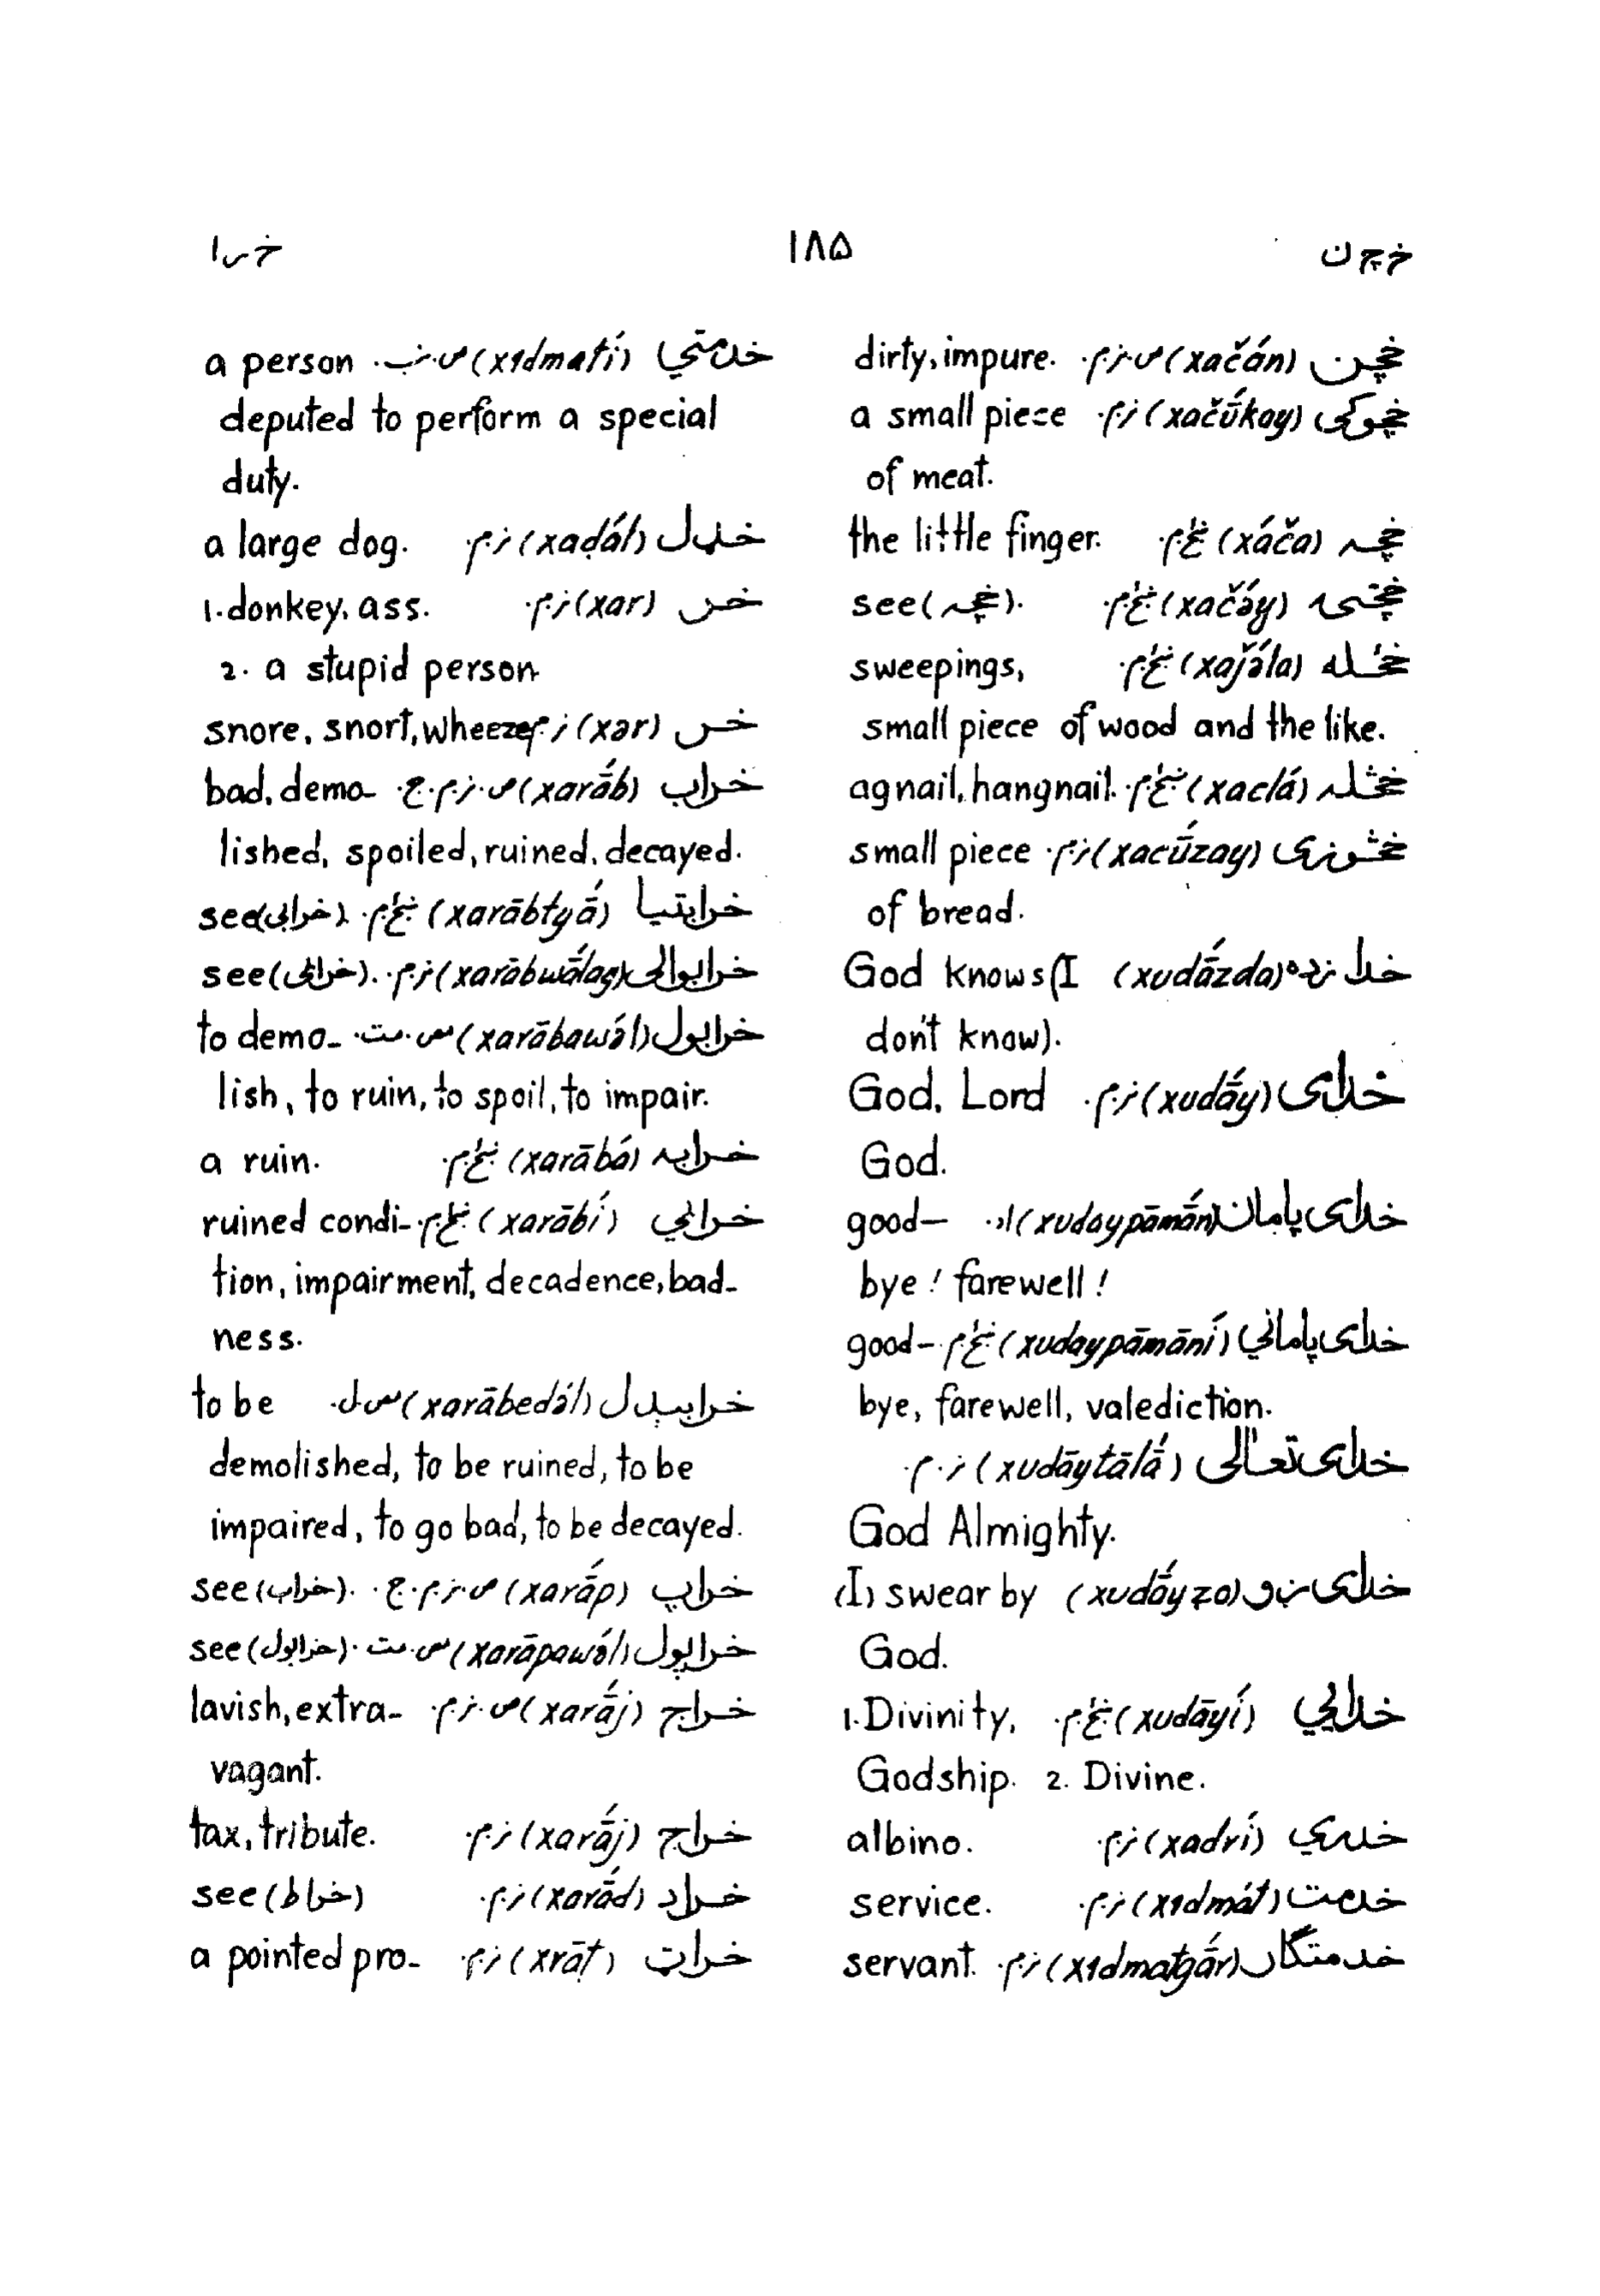 خ چ ن
۱۸۵
خ ر ا
خچن (xačán) ص. ز. م. dirty, impure.
خچوکی (xačū́kay) ز. م. a small piece
of meat.
خچه (xáča) ښځ. م. the little finger.
خچۍ (xačә́y) ښځ. م. see (خچه).
خځله (xaǰә́la) ښځ. م. sweepings,
small piece of wood and the like.
څخله (xaclá) ښځ. م. agnail, hangnail.
خڅوزی (xacū́zay) ز. م. small piece
of bread.
خدا زده (xudā́zda) God knows (I
don't know).
خدای (xudā́y) ز. م. God, Lord
God.
خدای پامان (xudaypāmā́n) ا د. good-
bye! farewell!
خدای پاماني (xudaypāmāní) ښځ. م. good-
bye, farewell, valediction.
خدای تعالی (xudāytālā́) ز. م.
God Almighty.
خدای ږو (xudā́yẓo) (I) swear by
God.
خدايي (xudāyí) ښځ. م. 1. Divinity,
Godship. 2. Divine.
خدري (xadrí) ز. م. albino.
خدمت (xɪdmát) ز. م. service.
خدمتګار (xɪdmatgā́r) ز. م. servant.
خدمتي (xɪdmatí) ص. ز ب. a person
deputed to perform a special
duty.
خډل (xaḍál) ز. م. a large dog.
خر (xar) ز. م. 1. donkey, ass.
2. a stupid person
خر (xәr) ز. م. snore, snort, wheeze.
خراب (xarā́b) ص. ز. م. ج. bad, demo-
lished, spoiled, ruined, decayed.
خرابتيا (xarābtyā́) ښځ. م. see (خرابي).
خرابوالی (xarābwā́lay) ز. م. see (خرابي).
خرابول (xarābawә́l) ص. مت. to demo-
lish, to ruin, to spoil, to impair.
خرابه (xarābá) ښځ. م. a ruin.
خرابي (xarābí) ښځ. م. ruined condi-
tion, impairment, decadence, bad-
ness.
خرابېدل (xarābedә́l) ص ل. to be
demolished, to be ruined, to be
impaired, to go bad, to be decayed.
خراپ (xarā́p) ص. ز. م. ج. see (خراب).
خراپول (xarāpawә́l) ص. مت. see (خرابول).
خراج (xarā́j) ص. ز. م. lavish, extra-
vagant.
خراج (xarā́j) ز. م. tax, tribute.
خراد (xarā́d) ز. م. see (خراط)
خراټ (xrāṭ) ز. م. a pointed pro-